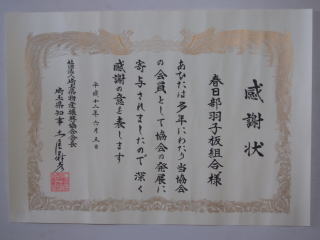 感謝状
春日部羽子板組合様
あなたは多年にわたり当協会
の会員として協会の発展に
寄与されましたので深く
感謝の意を表します
平成十二年六月五日
社団法人埼玉県物産振興協会会長
埼玉県知事 土屋義彦